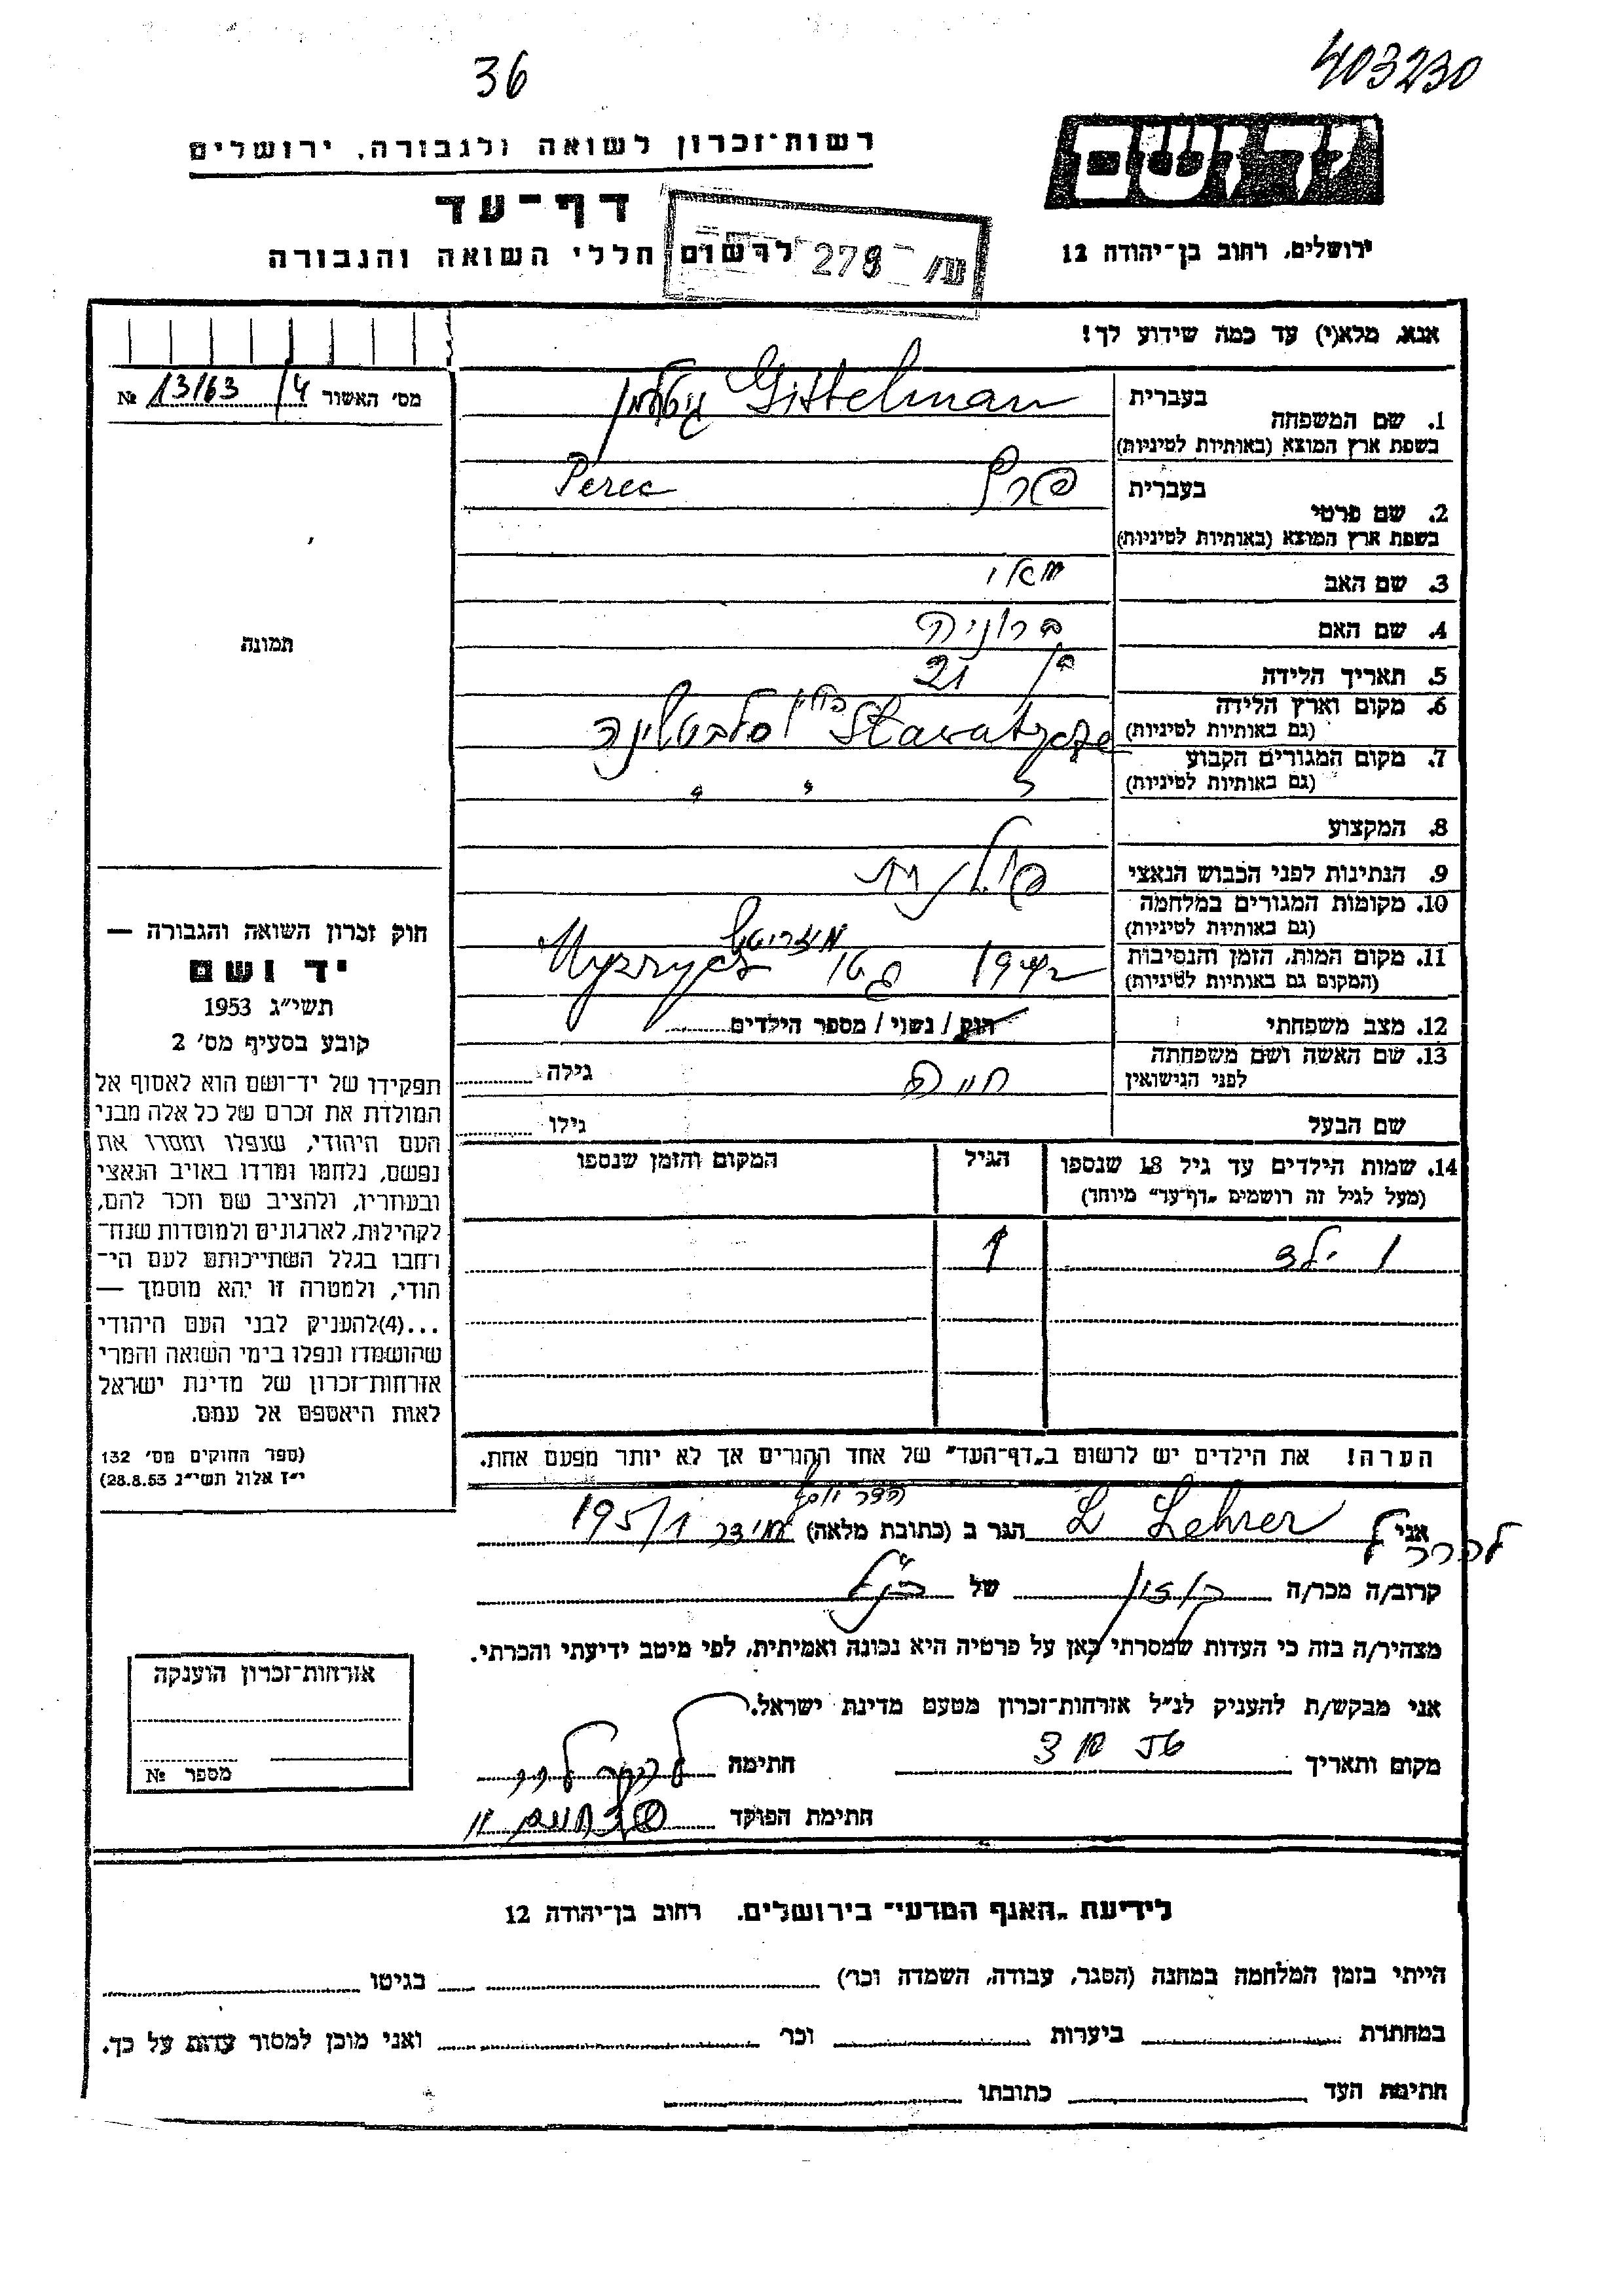 36
403230
רשות־זכרון לשואה ולגבורה, ירושלים
יד ושם
דף־עד
לרשום חללי השואה והגבורה
278
ירושלים, רחוב בן־יהודה 12
אנא, מלא(י) עד כמה שידוע לך!
מס׳ האשור 4/ 13/63 №
בעברית
1. שם המשפחה גיטלמן Gittelman
בשפת ארץ המוצא (באותיות לטיניות)
בעברית
2. שם פרטי פרץ Perec
בשפת ארץ המוצא (באותיות לטיניות)
3. שם האב
4. שם האם ברוניה
5. תאריך הלידה בן 21
6. מקום וארץ הלידה
(גם באותיות לטיניות)
7. מקום המגורים הקבוע
(גם באותיות לטיניות)
8. המקצוע
9. הנתינות לפני הכבוש הנאצי פולנית
10. מקומות המגורים במלחמה
(גם באותיות לטיניות)
11. מקום המות, הזמן והנסיבות 1942
(המקום גם באותיות לטיניות)
12. מצב משפחתי רווק / נשוי / מספר הילדים
13. שם האשה ושם משפחתה חיה גילה
לפני הנישואין
שם הבעל גילו
תמונה
חוק זכרון השואה והגבורה —
יד ושם
תשי״ג 1953
קובע בסעיף מס׳ 2
תפקידו של יד־ושם הוא לאסוף אל
המולדת את זכרם של כל אלה מבני
העם היהודי, שנפלו ומסרו את
נפשם, נלחמו ומרדו באויב הנאצי
ובעוזריו, ולהציב שם וזכר להם,
לקהילות, לארגונים ולמוסדות שנח־
רחבו בגלל השתייכותם לעם הי־
הודי, ולמטרה זו יהא מוסמך —
...(4)להעניק לבני העם היהודי
שהושמדו ונפלו בימי השואה והמרי
אזרחות־זכרון של מדינת ישראל
לאות היאספם אל עמם.
(ספר החוקים מס׳ 132
י״ז אלול תשי״ג 28.8.53)
14. שמות הילדים עד גיל 18 שנספו הגיל המקום והזמן שנספו
(מעל לגיל זה רושמים „דף־עד״ מיוחד)
1 ילד
הערה! את הילדים יש לרשום ב„דף־העד״ של אחד ההורים אך לא יותר מפעם אחת.
אני להרר ל L Lehrer הגר ב (כתובת מלאה) 195/1
קרוב/ה מכר/ה בן דוד של הנ״ל
מצהיר/ה בזה כי העדות שמסרתי כאן על פרטיה היא נכונה ואמיתית, לפי מיטב ידיעתי והכרתי.
אני מבקש/ת להעניק לנ״ל אזרחות־זכרון מטעם מדינת ישראל.
מקום ותאריך חתימה
חתימת הפוקד
אזרחות־זכרון הוענקה
מספר №
לידיעת „האגף המדעי״ בירושלים, רחוב בן־יהודה 12
הייתי בזמן המלחמה במחנה (הסגר, עבודה, השמדה וכו׳) בגיטו
במחתרת ביערות וכו׳ ואני מוכן למסור עדות על כך.
חתימת העד כתובתו